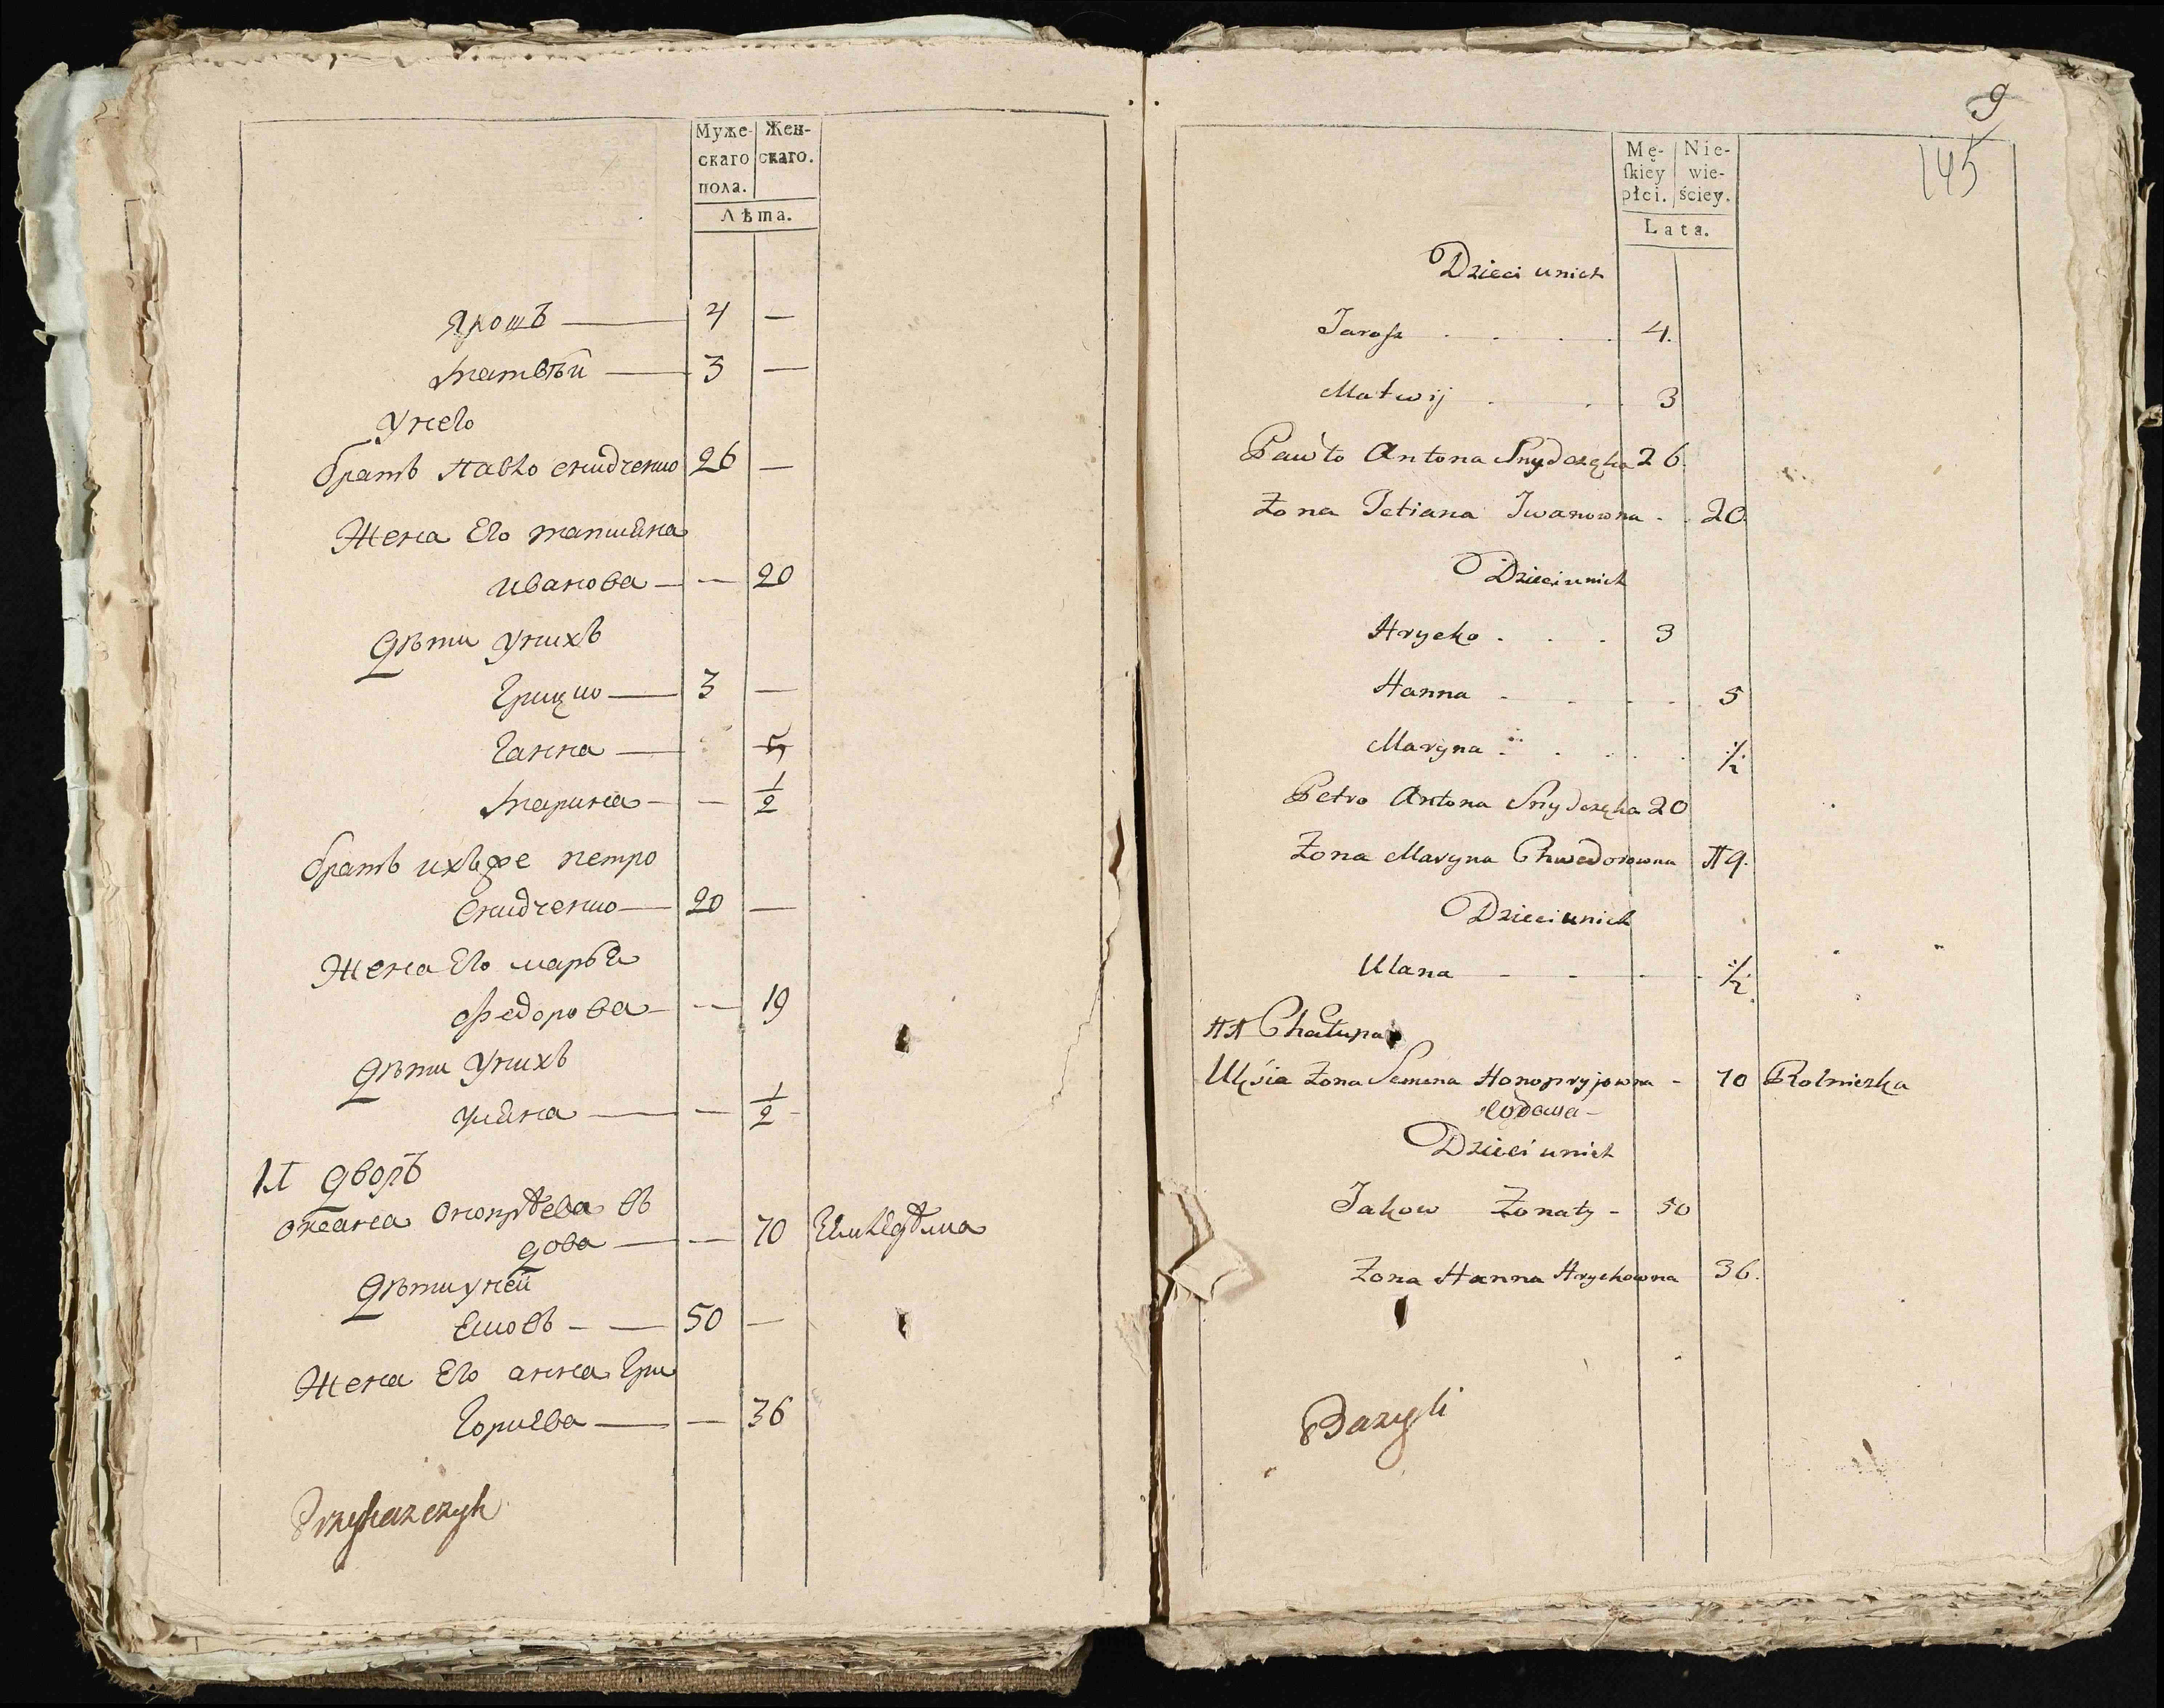 Муже- Жен-
скаго скаго.
пола.
Лѣта.
Ярошъ — 4 —
Матвѣй — 3 —
У него
братъ Павло Снидченко 26 —
Жена Его татияна
иванова — — 20
Дѣти У нихъ
Грицко — 3 —
Ганна — 5
Марина — — 1/2
братъ ихъже петро
Снидченко — 20 —
Жена Его марья
Федорова — — 19
Дѣти У нихъ
Уляна — — 1/2
11 Дворъ
Оксана Онопрѣева въ
дова — — 70
Дѣти у ней
Яковъ — — 50 —
Жена Его анна Гри
горьева — — 36
Przykazczyk
9
145
Mę- Nie-
ſkiey wie-
płci. ściey.
Lata.
Dzieci u nich
Jarosz . . . . 4.
Matwij . . . 3
Pawło Antona Snydczęka 26.
Zona Tetiana Iwanowna . . 20.
Dzieci u nich
Hrycko . . . 3
Hanna . . . . 5
Maryna . . . . 1/2
Petro Antona Snydczęka 20
Zona Maryna Chwedorowna 19.
Dzieci u nich
Ulana . . . . 1/2
11 Chałupa
Zona Semena Honopryjowna - 70 Rolniczka
wdowa -
Dzieci u nich
Jakow Zonaty - 50
Zona Hanna Hrychowna 36.
Bazyli